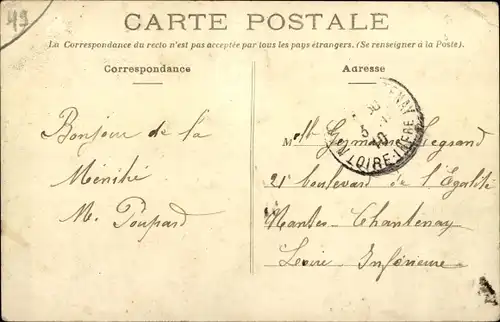 49
CARTE POSTALE
La Correspondance du recto n'est pas acceptée par tous les pays étrangers. (Se renseigner à la Poste).
Correspondance
Bonjour de la
Ménitré
M. Poupard
Adresse
M lle Germaine Legrand
21 boulevard de l'Egalité
Nantes-Chantenay
Loire Inférieure
LOIRE-INFRE